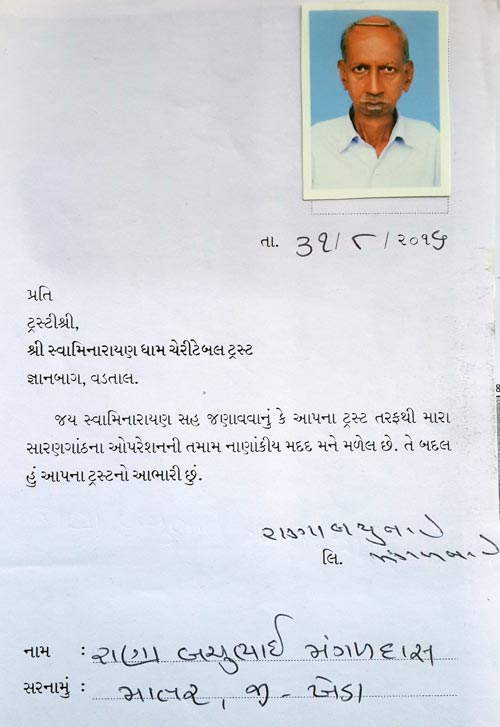 તા. ૩૧/૮/૨૦૧૫
પ્રતિ
ટ્રસ્ટીશ્રી,
શ્રી સ્વામિનારાયણ ધામ ચેરીટેબલ ટ્રસ્ટ
જ્ઞાનબાગ, વડતાલ.
જય સ્વામિનારાયણ સહ જણાવવાનું કે આપના ટ્રસ્ટ તરફથી મારા
સારણગાંઠના ઓપરેશનની તમામ નાણાંકીય મદદ મને મળેલ છે. તે બદલ
હું આપના ટ્રસ્ટનો આભારી છું.
રાણા બચુભાઈ
લિ. મંગળભાઈ
નામ : રાણા બચુભાઈ મંગળદાસ
સરનામું : માતર, જી - ખેડા